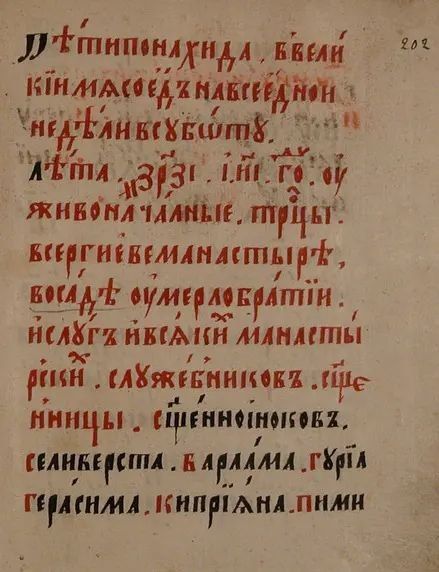 202
Пѣтипонахида . ввели
кїимѧсоедънавсеедной
недѣливсубѡту .
лѣта . ҂зр҃зі . ї . и҃і . го . оу
живоначалные . трⷪ҇цы .
всергиевеманастырѣ ,
восадѣ оумерлобратїи .
ислугъ ивсѧкиⷯ манасты
рскиⷯ . служебниковъ . сщ҃е
нницы . сщ҃енноїноковъ .
селиверста . варлаама . гурїа
герасима . кипрїѧна . пими